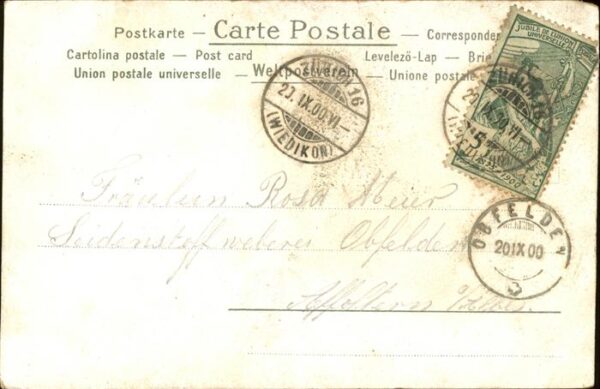 Postkarte — Carte Postale — Corresponden
Cartolina postale — Post card Levelező-Lap — Brie
Union postale universelle — Weltpostverein — Unione postale
JUBILÉ DE L'UNION POSTALE
UNIVERSELLE
5
ZÜRICH 16
20.IX.00.VI—
(WIEDIKON)
ZÜRICH 16
OBFELDEN
20 IX 00
Fräulein Rosa Meier
Seidenstoffweberei Obfelden
Affoltern a/Albis